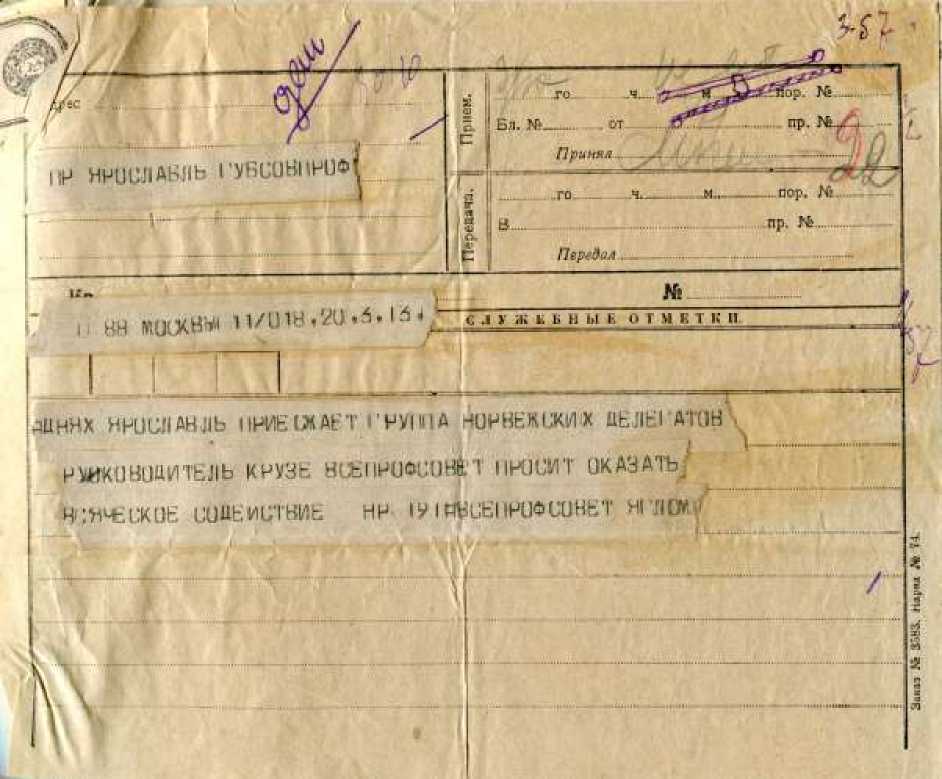 3-57
рес
ПР ЯРОСЛАВЛЬ ГУБСОВПРОФ
Прием.
го ч. м. пор. №
Бл. № от пр. №
Принял
22
Передача.
го ч. м. пор. №
В пр. №
Передал
№
88 МОСКВЫ 11/018.20.3.13.
СЛУЖЕБНЫЕ ОТМЕТКИ.
АДНЯХ ЯРОСЛАВЛЬ ПРИЕСЖАЕТ ГРУППА НОРВЕЖСКИХ ДЕЛЕГАТОВ
РУКОВОДИТЕЛЬ КРУЗЕ ВСЕПРОФСОВЕТ ПРОСИТ ОКАЗАТЬ
ВСЯЧЕСКОЕ СОДЕИСТВИЕ НР 191 ВСЕПРОФСОВЕТ ЯГЛОМ
Заказ № 3583. Наряд № 74.